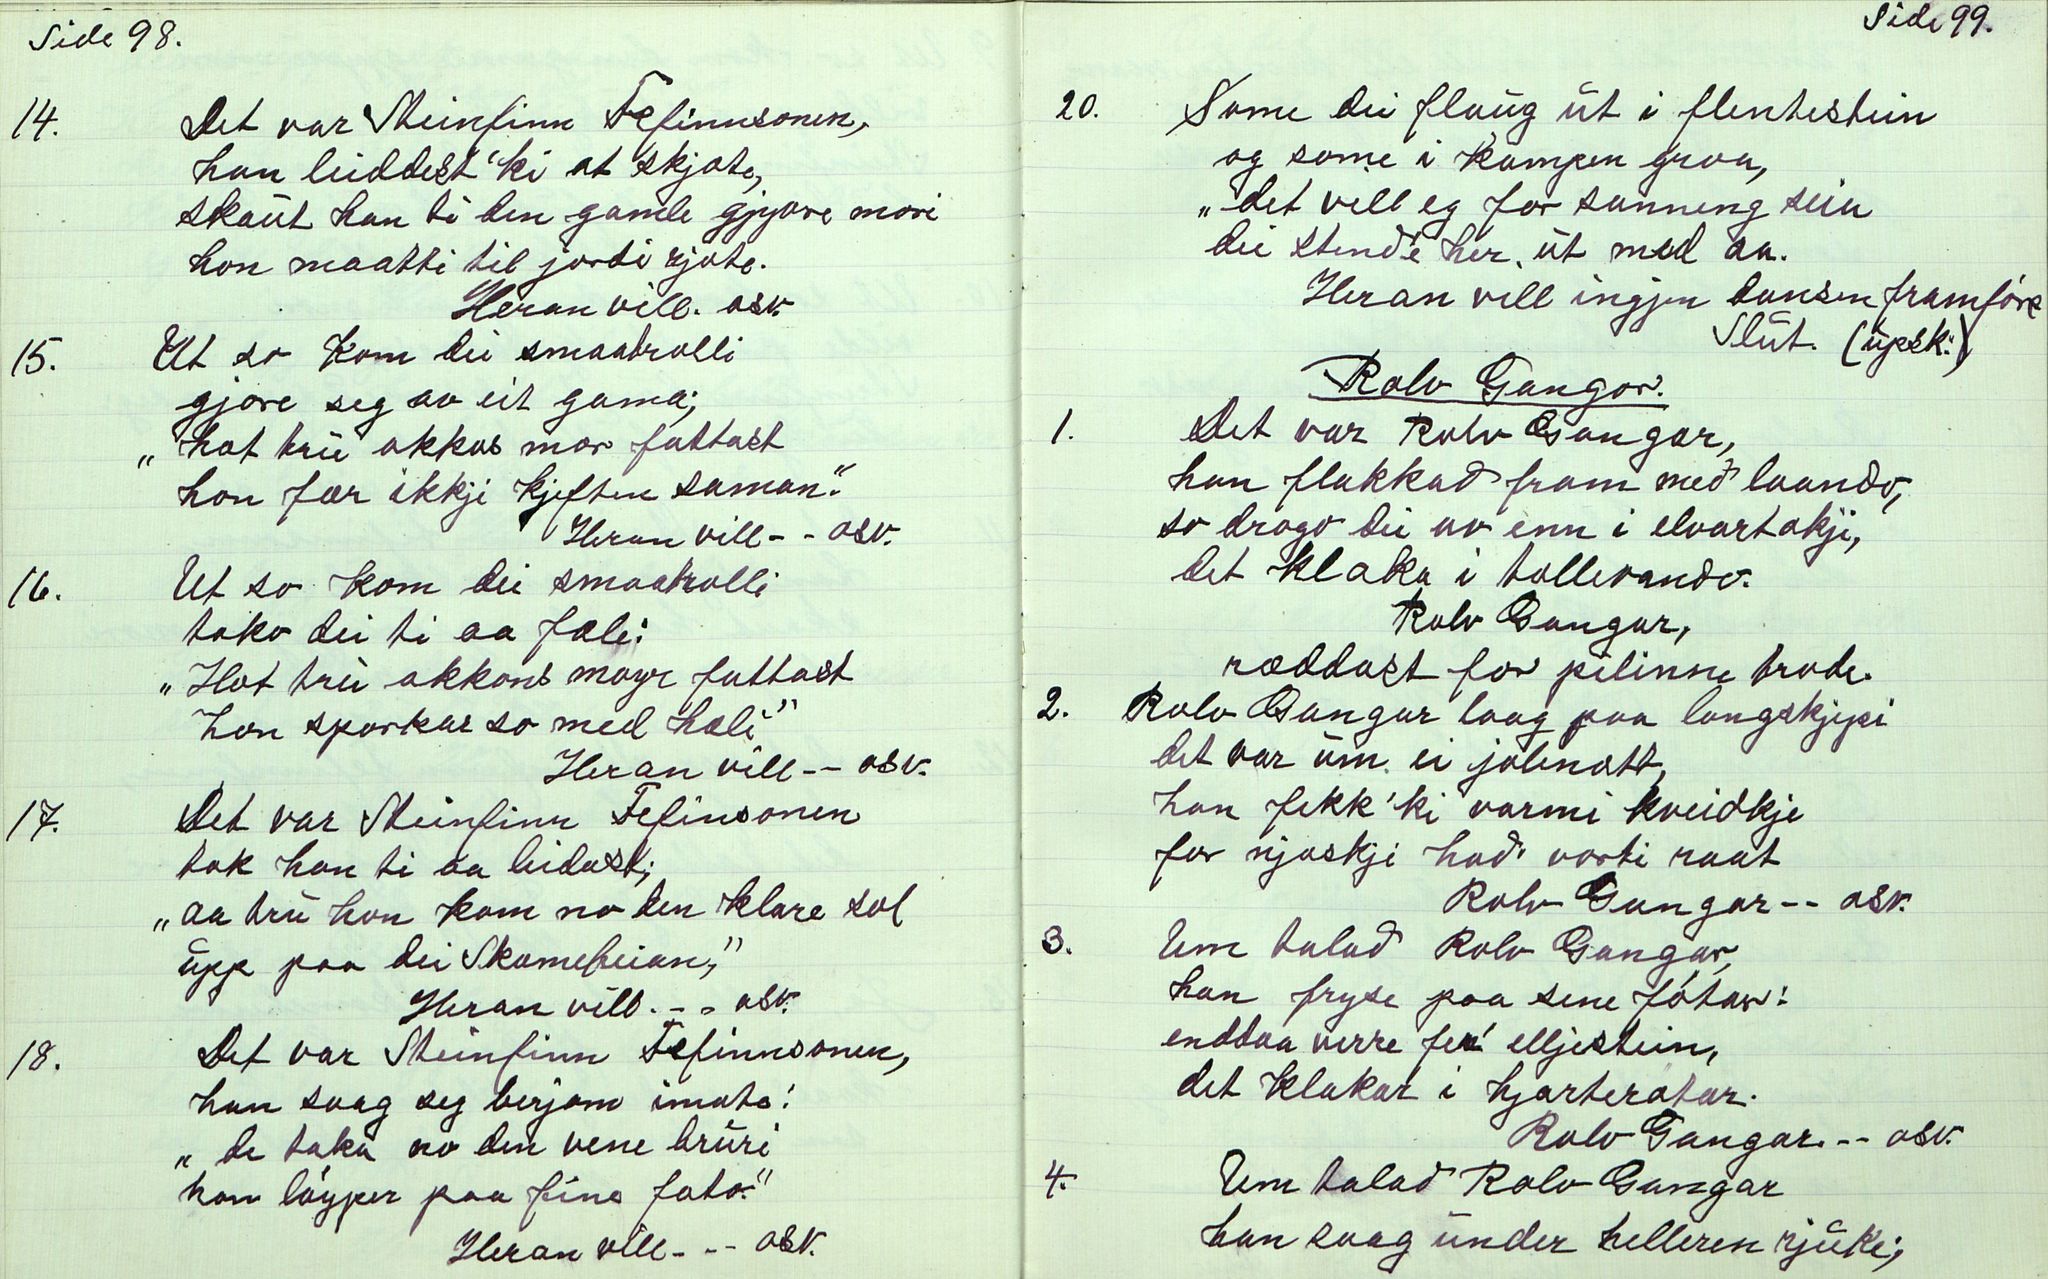 Side 98.
14. Det var Steinfinn Fefinnsonen,
han leiddest 'ki at skjote,
skaut han ti den gamle gjyore mori
hon maatti til jordi rjote.
Heran vill. osv.
15. Ut so kom dei smaatrolli
gjore seg av eit gama;
„hot trú okkos mor fattast
hon fær ikkji kjeften saman."
Heran vill - - osv.
16. Ut so kom dei smaatrolli
toko dei ti aa fæle:
„Hot trú okkons moyr fattast
hon sparkar so med hæli"
Heran vill -- osv.
17. Det var Steinfinn Fefinsonen
tok han ti aa leidast;
„aa trú hon kom no den klare sol
upp paa dei Skomeheian,"
Heran vill. - - osv.
18. Det var Steinfinn Fefinnsonen,
han saag seg berjom imote:
„de taka no den vene bruri
hon løyper paa fine foto."
Heran vill - - - osv.
Side 99.
20. Some dei flaug ut i flentestein
og some i kampen graa,
„det vill eg for sanneng seia
dei stend'e her ut med aa.
Heran vill ingjen dansen framføre
Slut. (úpsk.)
Rolv Gangar.
1. Det var Rolv Gangar,
han flakkad fram med laando,
so drogo dei av enn i elvartokji,
det klaka i tollevando.
Rolv Gangar,
ræddast for pilinne brode.
2. Rolv Gangar laag paa langskjepi
det var um ei jolenott,
han fekk 'ki varmi kveidkje
for njoskji had' vorti raat
Rolv Gangar -- osv.
3. Um talad Rolv Gangar,
han fryse paa sine føtar:
enddaa verre fer' elljestein,
det klakar i hjarterøtar.
Rolv Gangar. -- osv.
4. Um talad Rolv Gangar
han saag under helleren rjuke,